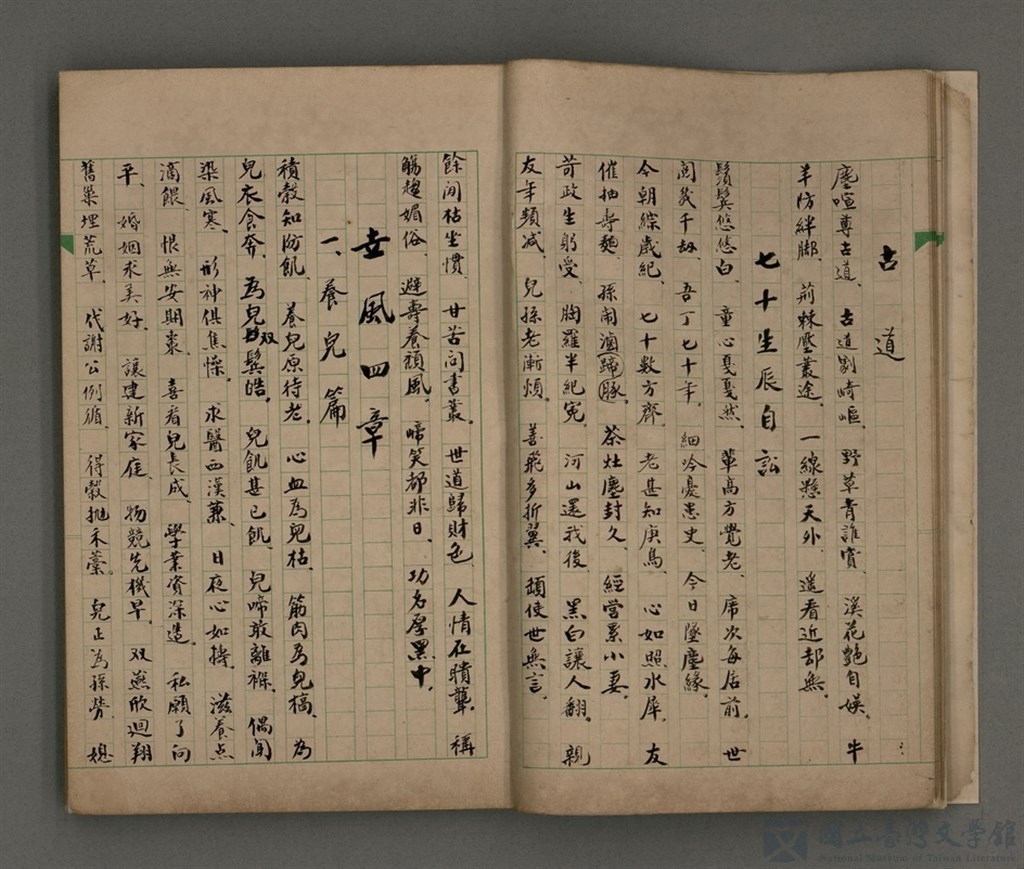 古道
塵喧尋古道、古道剩崎嶇、野草青誰賞、溪花艷自娛、牛
羊防絆腳、荊棘壓叢途、一線懸天外、遙看近却無。
七十生辰自訟
鬚鬢悠悠白、童心戛戛然、輩高方覺老、席次每居前、世
閱幾千劫、吾丁七十年、細吟憂患史、今日墜塵緣、
今朝綜歲紀、七十數方齊、老甚知庚鳥、心如照水犀、友
催抽壽麵、孫鬧滷蹄豚、茶灶塵封久、經營累小妻、
苛政生躬受、胸羅半紀冤、河山還我後、黑白讓人翻、親
友年頻减、兒孫老漸煩、善飛多折翼、頭使世無言、
餘閒枯坐慣、甘苦問書叢、世道歸財色、人情在聵聾、稱
觴趨媚俗、避壽養頹風、啼笑都非日、功名厚黑中、
古風四章
一、養兒篇
積穀知防飢、養兒原待老、心血為兒枯、筋肉為兒槁、為
兒衣食奔、為兒双鬢皓、兒飢甚己飢、兒啼敢離褓、偶聞
染風寒、形神俱焦懆、求醫西漢兼、日夜心如擣、滋養点
滴餵、恨無安期棗、喜看兒長成、學業資深造、私願了向
平、婚姻求美好、讓建新家庭、物競先機早、双燕欣迴翔
舊巢埋荒草、代謝公例循、得穀拋禾藁、兒正為孫勞、媳
國立臺灣文學館
National Museum of Taiwan Literature